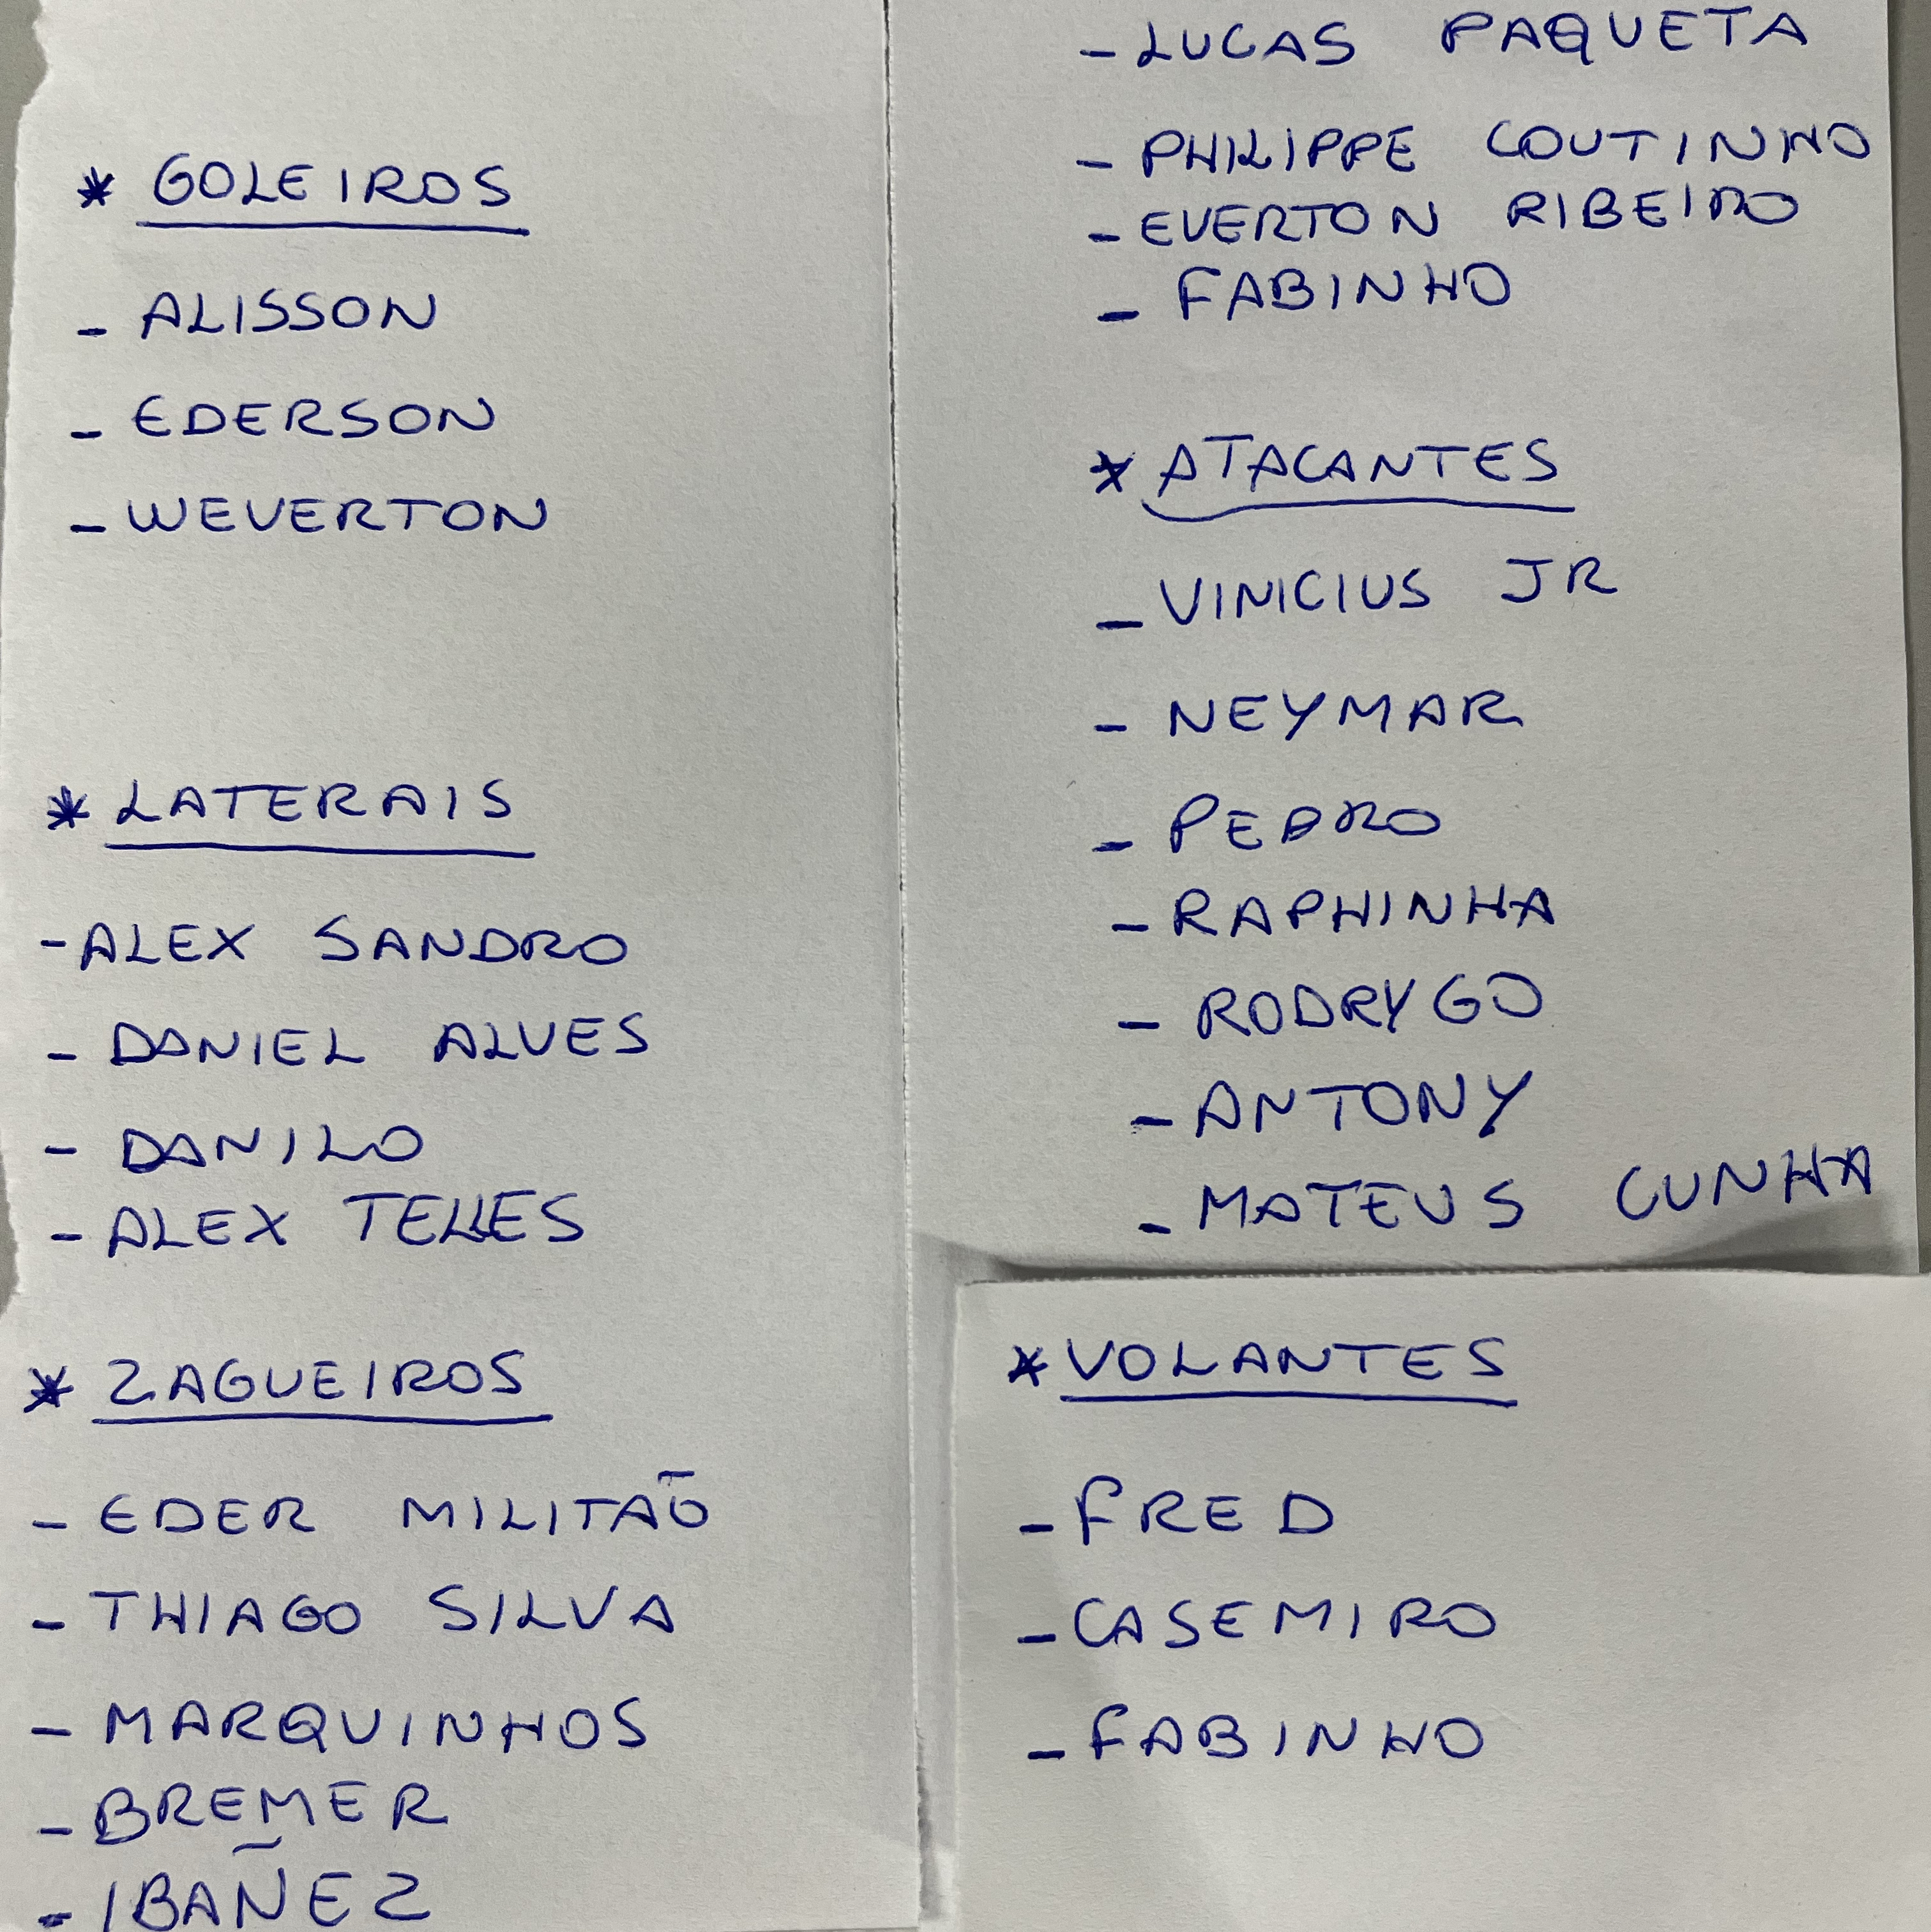 * GOLEIROS
- ALISSON
- EDERSON
- WEVERTON
* LATERAIS
- ALEX SANDRO
- DANIEL ALVES
- DANILO
- ALEX TELLES
* ZAGUEIROS
- EDER MILITAÕ
- THIAGO SILVA
- MARQUINHOS
- BREMER
- IBAÑEZ
- LUCAS PAQUETA
- PHILIPPE COUTINHO
- EVERTON RIBEIRO
- FABINHO
* ATACANTES
- VINICIUS JR
- NEYMAR
- PEDRO
- RAPHINHA
- RODRYGO
- ANTONY
- MATEUS CUNHA
* VOLANTES
- FRED
- CASEMIRO
- FABINHO